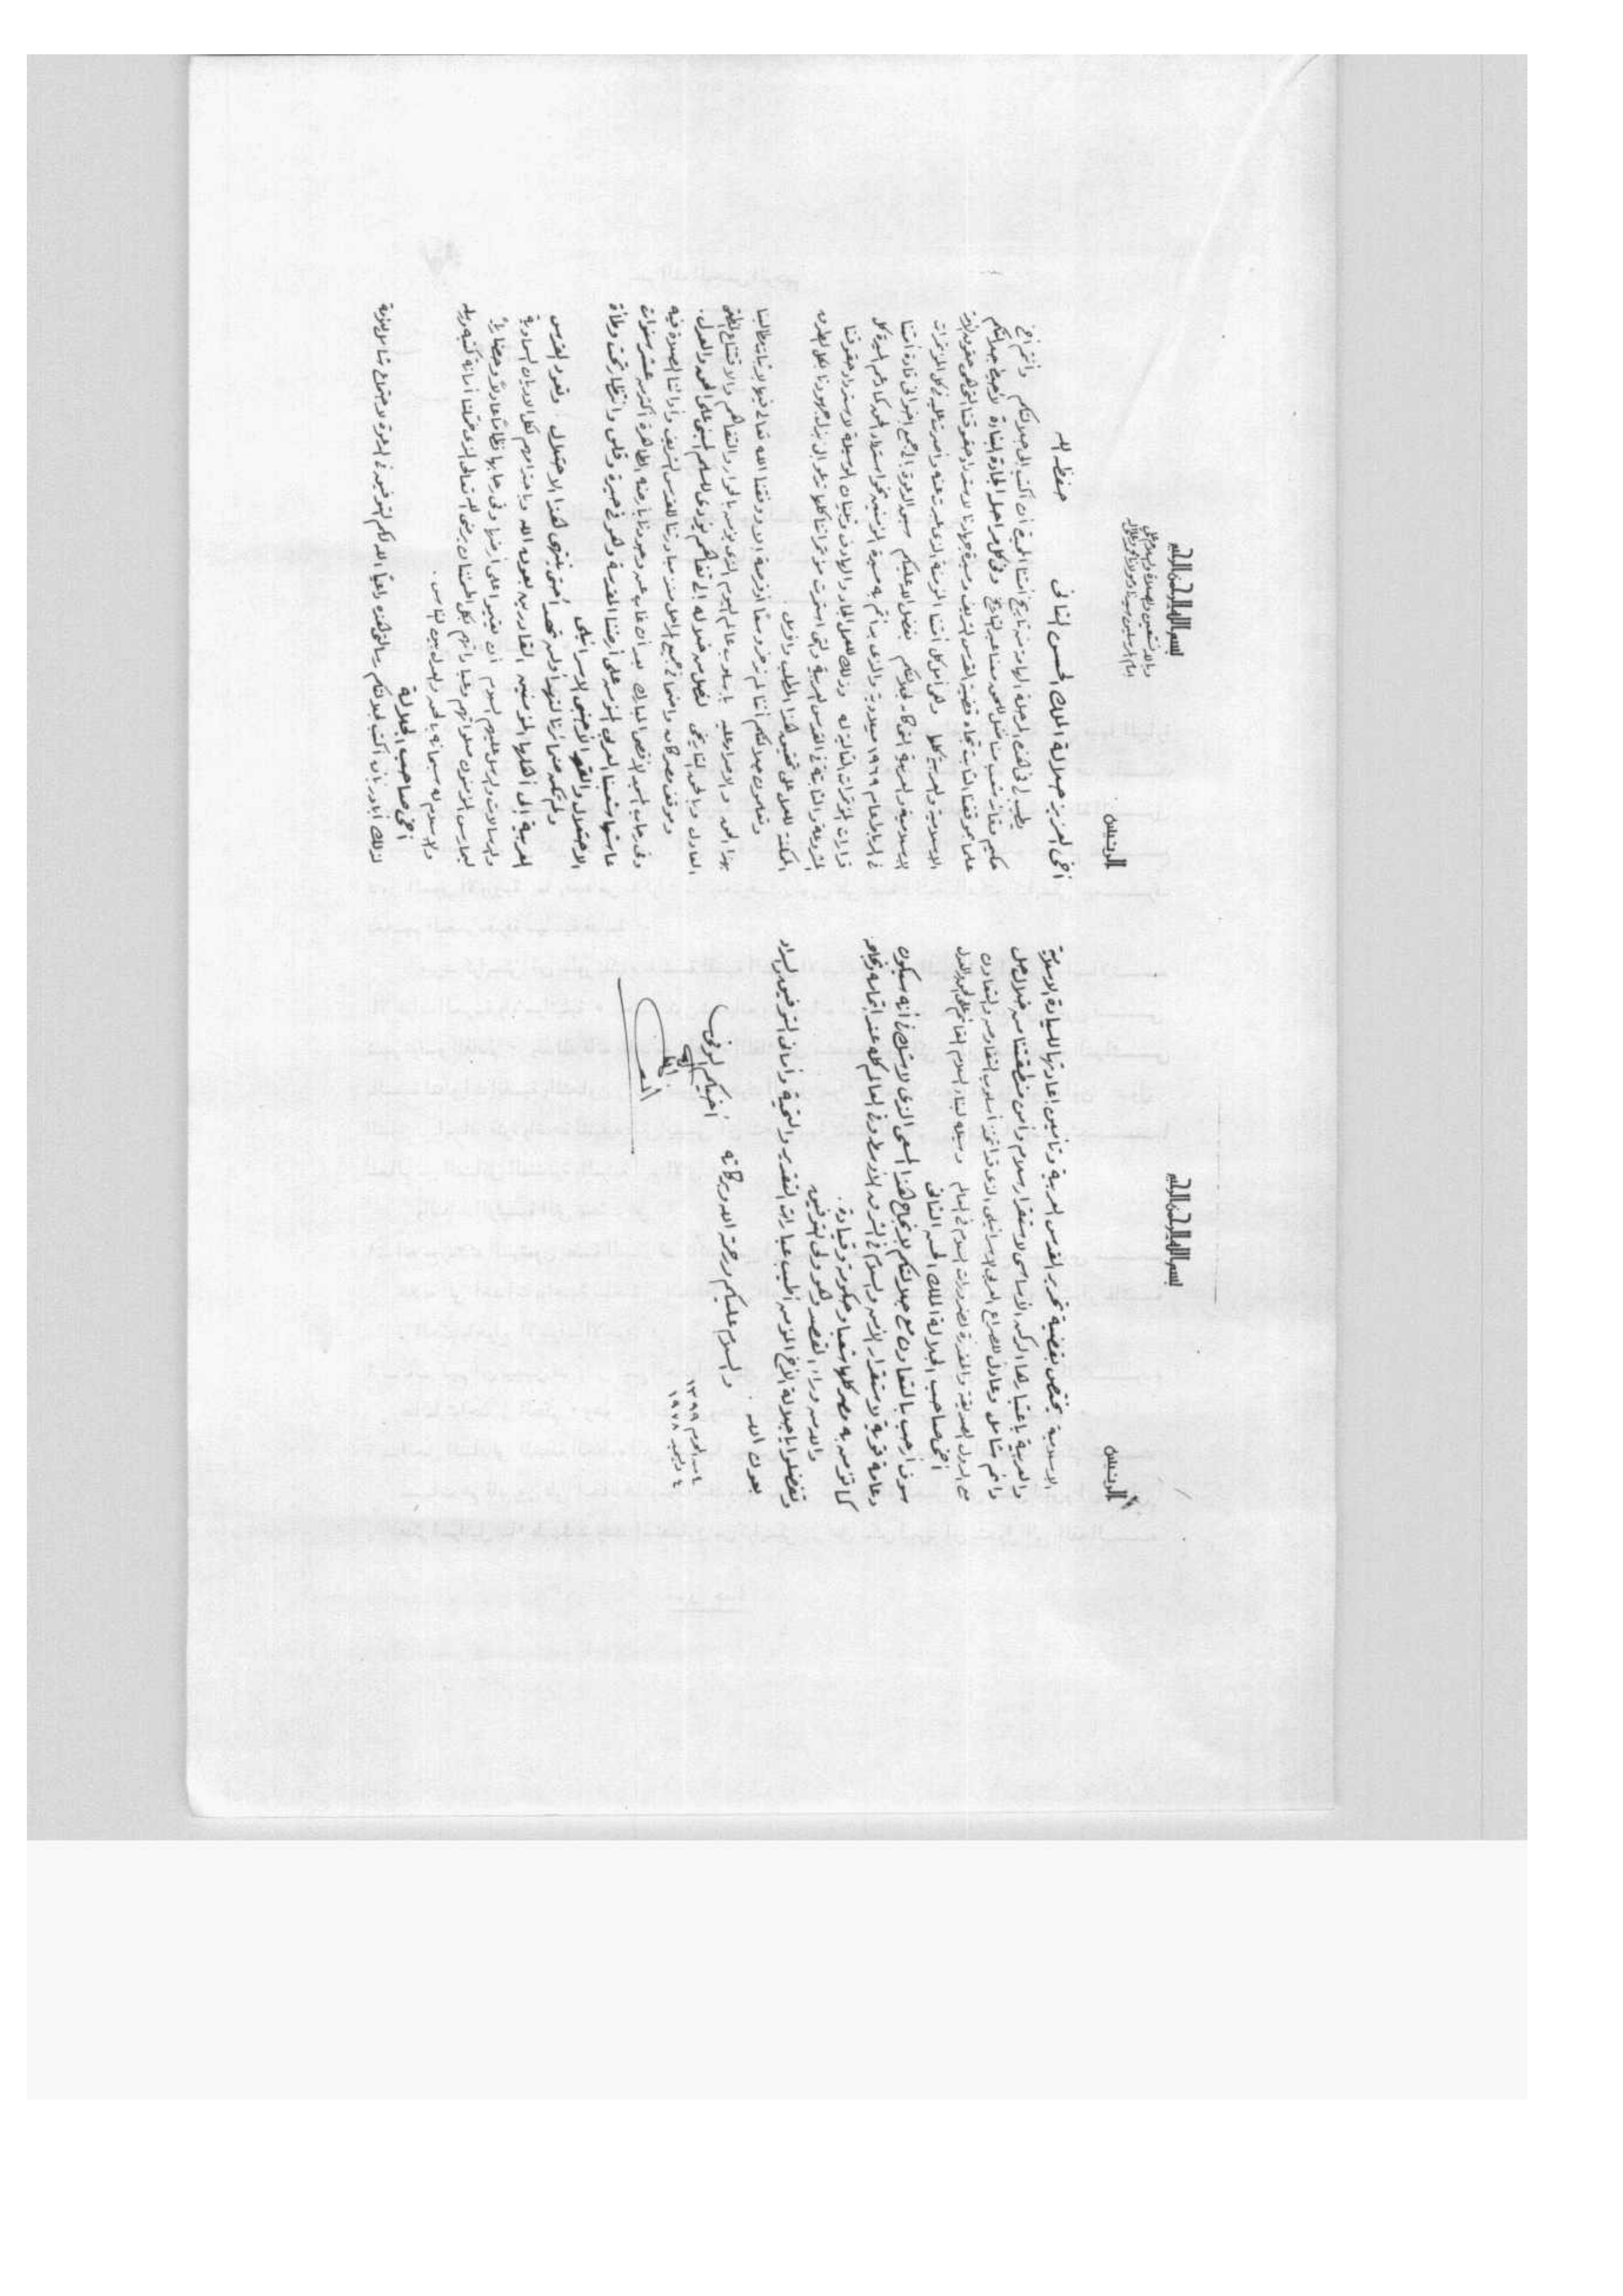 بسم الله الرحمن الرحيم
وبه نستعين والصلاة والسلام على
إمام المرسلين سيدنا ومولانا محمد وآله
الرئيس
أخى العزيز جلالة الملك الحسن الثانى حفظه الله
يطيب لى فى هذه المرحلة الهامة من تاريخ أمتنا المجيدة أن أكتب إلى جلالتكم وأنتم أخ
حكيم وقائد شعب مناضل
علما بموقفنا الثابت تجاه قضية القدس الشريف
الإسلامية والعربية كلها
الإسلامية والعربية
فى الرباط عام ١٩٦٩ ميلادية والذى بدأتم به مسيرة المؤمنين نحو استعادة الحق
قرارات المؤتمرات التالية له وذلك للعمل الجاد والهادف وتبيان الوسيلة لاسترداد حقوقنا
المشروعة والثابتة فى القدس العربية
الممكنة للعمل على تحقيق هذا المطلب
وتعلمون جلالتكم أننا لم ندخر وسعا أو فرصة إلا ووفقنا الله تعالى فيها لإثبات مطالبنا
بهذا الحق والإصرار عليه بأسلوب عالم اليوم الذى يؤمن بالحوار والتفاهم والاقتناع
العادل والحق التاريخى لنصل من خلاله إلى تفاهم يؤدى للسلام المبنى على الحق والعدل.
وموقف مصر كان واضحا فى جميع المراحل منذ مبادرتنا للقدس الشريف وأدائنا الصلاة فيه
وفى رحاب المسجد الأقصى المبارك بعد أن غاب عن وجودنا بأرضه الطاهرة أكثر من عشر سنوات
عاشها شعبنا العربى المؤمن على أرضنا المقدسة وهو فى حيرة وقلق وانتظار تحت وطأة
الاحتلال والقهر الأجنبى الإسرائيلى
ولم تكن ضمائرنا لتهدأ ولن تهدأ حتى ينتهى هذا الاحتلال. وتعود القدس
العربية إلى أهلها المؤمنين القادرين بعون الله وباحترامهم لكل الأديان السماوية
والرسالات والرسل عليهم السلام أن يقيموا على أرضها وفى رحابها نظاما عادلا وحضاريا
ليمارس المؤمنون صلواتهم وعباداتهم بكل اطمئنان يرضى الله تعالى الذى حملنا أمانة كتبه ورسله
والإسلام له سبحانه بالحمد والعدل بين الناس.
أخى صاحب الجلالة
لذلك أبادر بأن أكتب لجلالتكم رسالتى هذه راجيا الله لكم التوفيق فى الدعوة لاجتماع
بسم الله الرحمن الرحيم
الرئيس
الإسلامية يختص بقضية تحرير القدس العربية وتأمين إعادتها للسيادة الإسلامية
والعربية باعتبارها الركن الأساسى لاستقرار سلام وأمن منطقتنا من خلال حل
دائم شامل وعادل للصراع العربى الإسرائيلى الذى قد اتخذ أسلوب التفاوض والتعاون
مع الدول الصديقة والمقدرة لضرورات السلام فى العالم وسيلة لبناء السلام القائم على الحق والعدل
أخى صاحب الجلالة الملك الحسن الثانى
سوف أرحب بالتعاون مع جلالتكم لإنجاح هذا المسعى الذى لا شك فى أنه سيكون
دعامة قوية لاستقرار الأمن والسلام فى الشرق الأوسط وفى العالم كله عند إتمامه ونجاحه
كما تؤمن به مصر كلها شعبا وحكومة وقيادة.
والله من وراء القصد وهو ولى التوفيق
وتفضلوا يا جلالة الأخ المؤمن أطيب عبارات التقدير والتحية وأمانى التوفيق والسداد
بعون الله.
والسلام عليكم ورحمة الله وبركاته
أخيكم الوفى
٤ من المحرم ١٣٩٩
٤ ديسمبر ١٩٧٨